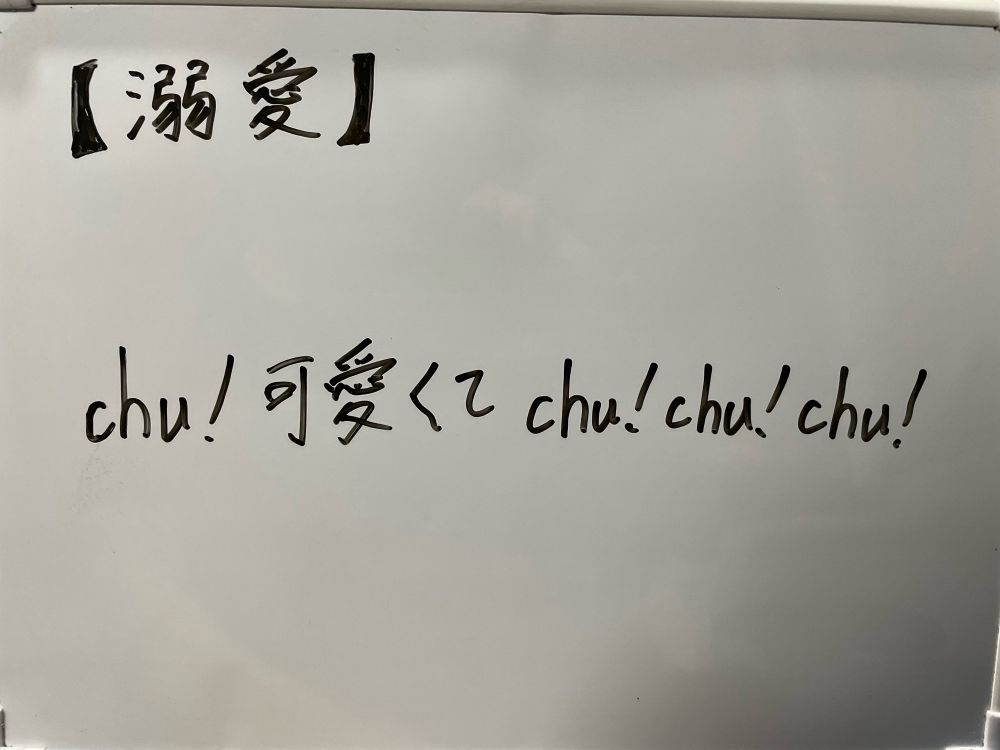 【溺愛】
chu!可愛くて chu!chu!chu!